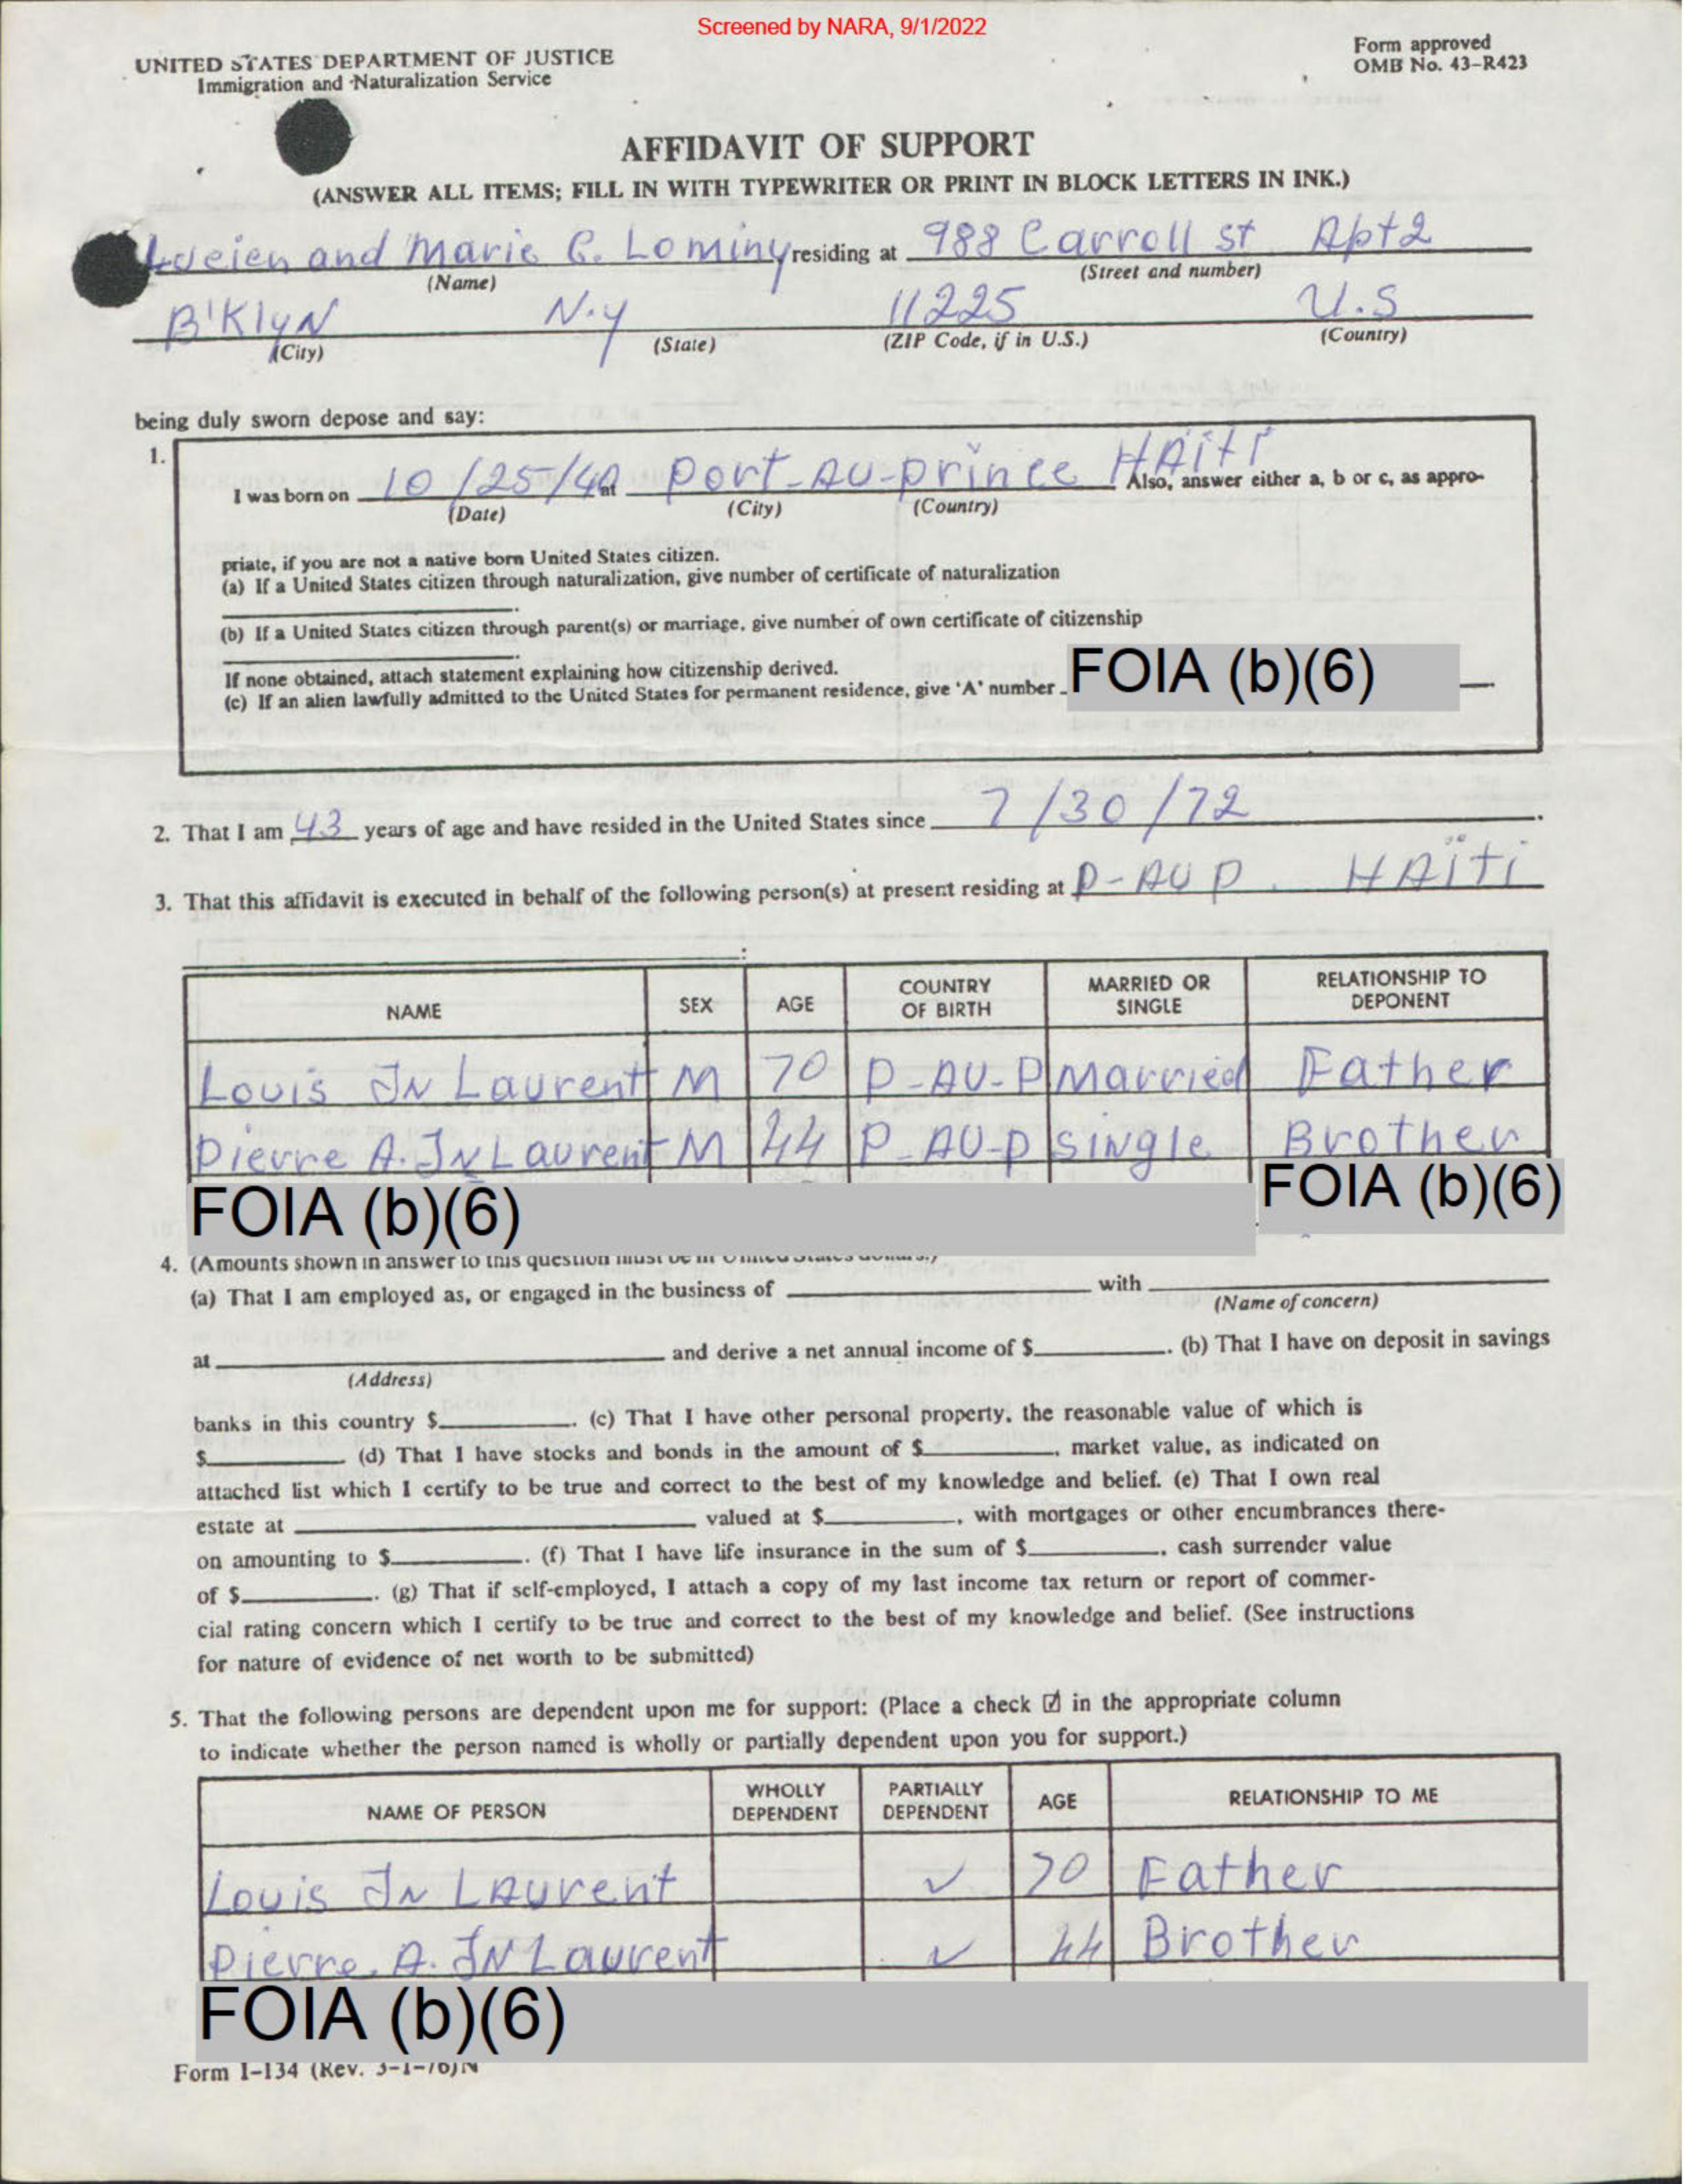 Screened by NARA, 9/1/2022
UNITED STATES DEPARTMENT OF JUSTICE
Immigration and Naturalization Service
Form approved
OMB No. 43-R423
AFFIDAVIT OF SUPPORT
(ANSWER ALL ITEMS; FILL IN WITH TYPEWRITER OR PRINT IN BLOCK LETTERS IN INK.)
Lucien and Marie C. Lominy residing at 988 Carroll st Apt 2
(Name) (Street and number)
B'KlyN N.y 11225 U.S
(City) (State) (ZIP Code, if in U.S.) (Country)
being duly sworn depose and say:
1.
I was born on 10/25/40 at Port-AU-prince HAiti Also, answer either a, b or c, as appro-
(Date) (City) (Country)
priate, if you are not a native born United States citizen.
(a) If a United States citizen through naturalization, give number of certificate of naturalization
(b) If a United States citizen through parent(s) or marriage, give number of own certificate of citizenship
If none obtained, attach statement explaining how citizenship derived.
(c) If an alien lawfully admitted to the United States for permanent residence, give 'A' number FOIA (b)(6)
2. That I am 43 years of age and have resided in the United States since 7/30/72.
3. That this affidavit is executed in behalf of the following person(s) at present residing at P-AU P. HAïti
NAME SEX AGE COUNTRY OF BIRTH MARRIED OR SINGLE RELATIONSHIP TO DEPONENT
Louis JN Laurent M 70 P-AU-P Married Father
Pierre A. JN Laurent M 44 P-AU-P SiNgle Brother
FOIA (b)(6) FOIA (b)(6)
4. (Amounts shown in answer to this question must be in United States dollars.)
(a) That I am employed as, or engaged in the business of with
(Name of concern)
at and derive a net annual income of $ . (b) That I have on deposit in savings
(Address)
banks in this country $ . (c) That I have other personal property, the reasonable value of which is
$ (d) That I have stocks and bonds in the amount of $ , market value, as indicated on
attached list which I certify to be true and correct to the best of my knowledge and belief. (e) That I own real
estate at valued at $ , with mortgages or other encumbrances there-
on amounting to $ . (f) That I have life insurance in the sum of $ , cash surrender value
of $ . (g) That if self-employed, I attach a copy of my last income tax return or report of commer-
cial rating concern which I certify to be true and correct to the best of my knowledge and belief. (See instructions
for nature of evidence of net worth to be submitted)
5. That the following persons are dependent upon me for support: (Place a check ☑ in the appropriate column
to indicate whether the person named is wholly or partially dependent upon you for support.)
NAME OF PERSON WHOLLY DEPENDENT PARTIALLY DEPENDENT AGE RELATIONSHIP TO ME
Louis JN LAurent ✓ 70 Father
Pierre. A. JN Laurent ✓ 44 Brother
FOIA (b)(6)
Form I-134 (Rev. 3-1-76)N